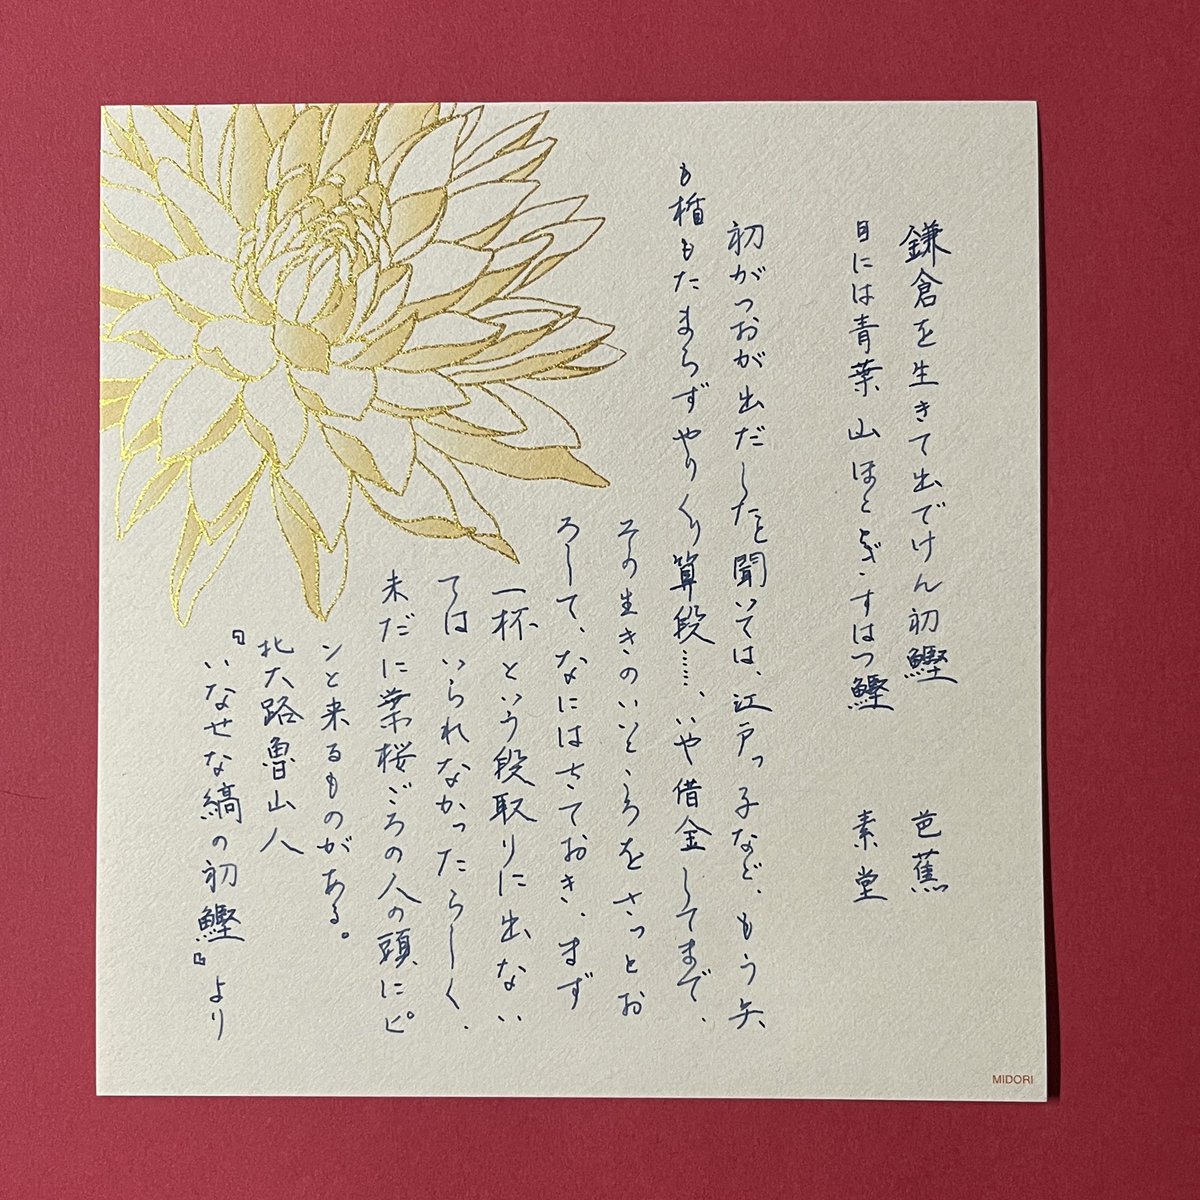 鎌倉を生きて出でけん初鰹 芭蕉
目には青葉山ほとゝぎすはつ鰹 素堂
初がつおが出だしたと聞いては、江戸っ子など、もう矢
も楯もたまらずやりくり算段……、いや借金してまで、
その生きのいいところをさっとお
ろして、なにはさておき、まず
一杯という段取りに出ない
ではいられなかったらしく、
未だに葉桜ごろの人の頭にピ
ンと来るものがある。
北大路魯山人
『いなせな縞の初鰹』より
MIDORI